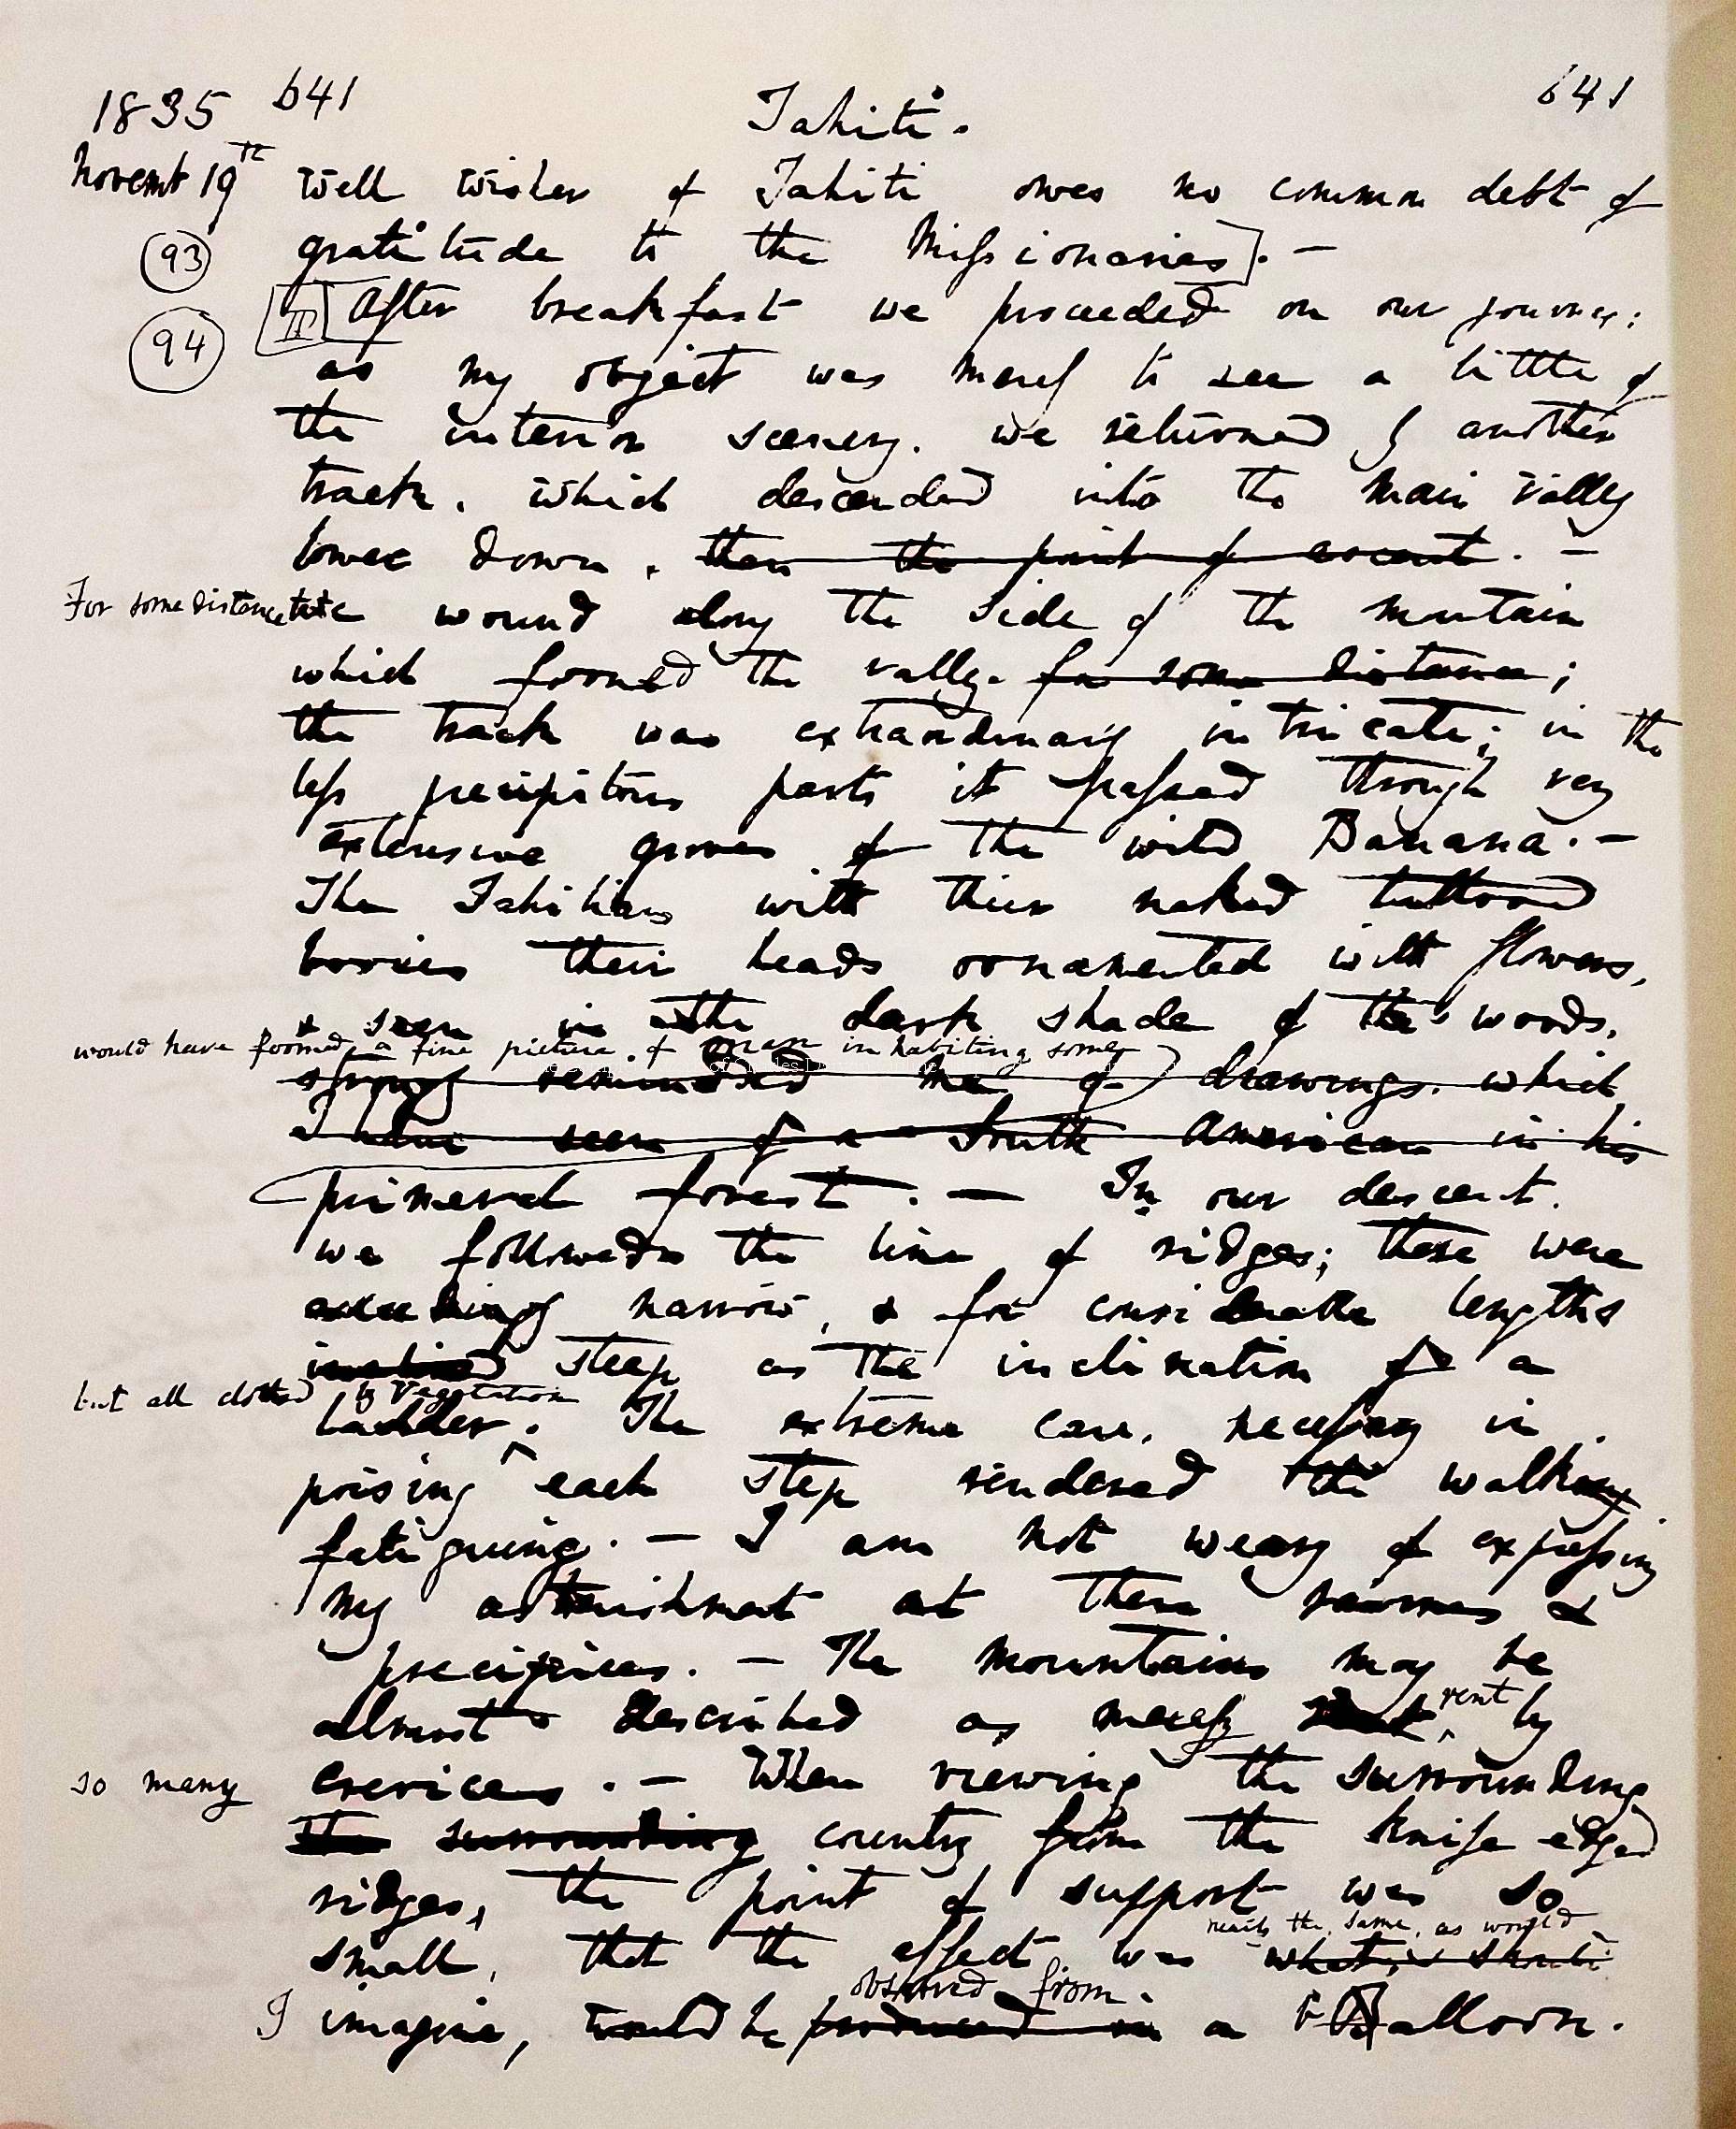 1835 641 Tahiti. 641
Novemb 19th well wisher of Tahiti owes no common debt of
93 gratitude to the Missionaries]. —
94 II After breakfast we proceeded on our journey:
as my object was merely to see a little of
the interior scenery. we returned by another
track, which descended into the main valley
lower down, then the point of ascent. —
For some distance we wound along the side of the mountain
which formed the valley. for some distance;
the track was extraordinary intricate; in the
less precipitous parts it passed through very
extensive groves of the wild Banana. —
The Tahitians with their naked tattooed
bodies their heads ornamented with flowers,
& seen in the dark shade of the woods,
would have formed a fine picture of man inhabiting some
strongly reminded me of drawings. which
I have seen of a South American in his
primeval forest. — In our descent.
we followed the line of ridges; these were
exceedingly narrow, & for considerable lengths
inclined steep as the inclination of a
but all clothed by vegetation
ladder. The extreme care, necessary in
poising each step rendered the walk
fatiguing. — I am not weary of expressing
my astonishment at these ravines &
precipices. — The mountains may be
almost described as merely rent by
so many crevices. — When viewing the surrounding
the surrounding country from the knife edged
ridges, the point of support was so
nearly the same, as would
small, that the effect was what, I should
observed from.
I imagine, would be produced in a balloon.